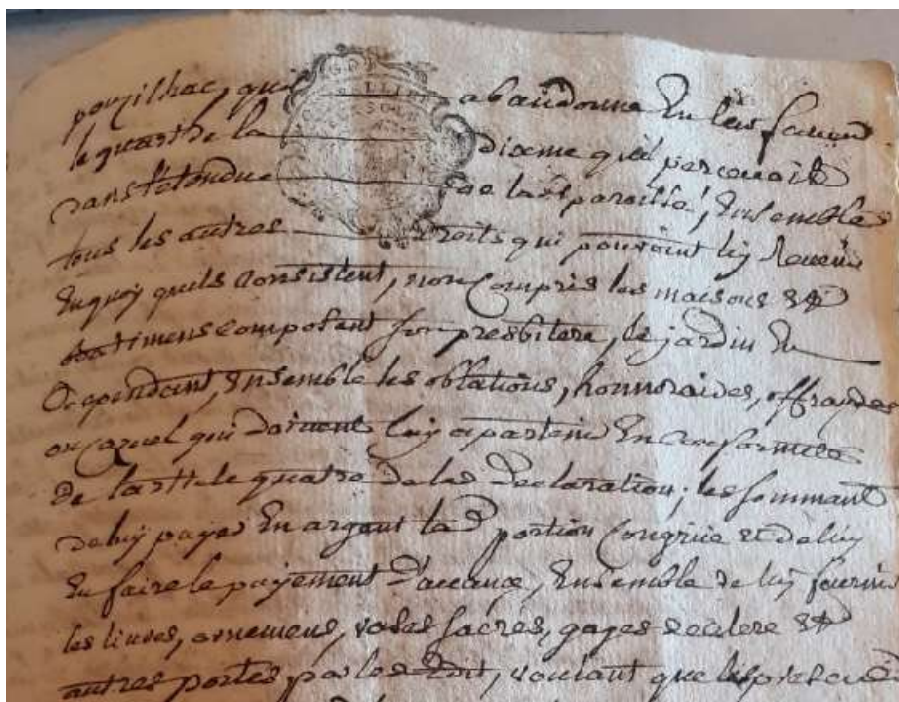 pouzilhac, qu'il abandonne En leur faveur
le quart de la dixme qu'il percevoit
dans l'etendue de lad paroisse, Ensembles
tous les autres droits qui pouvoint luy Revenir
En quoy quils consistent, non Compris les maisons &
battimens composant son presbitere, le jardin En
Dependant, Ensemble les oblations, honnoraires, offrandes
ou Cazuel qui doivent luy apartenir En Conformité
de l'article quatre de lad Declaration; les sommant
de luy payer En argent lad portion Congrüe et de luy
En faire le payement D'avance, Ensemble de luy fournir
les livres, ornemens, vases sacrés, gages de clerc &
autres portés par led Edit, voulant que le present